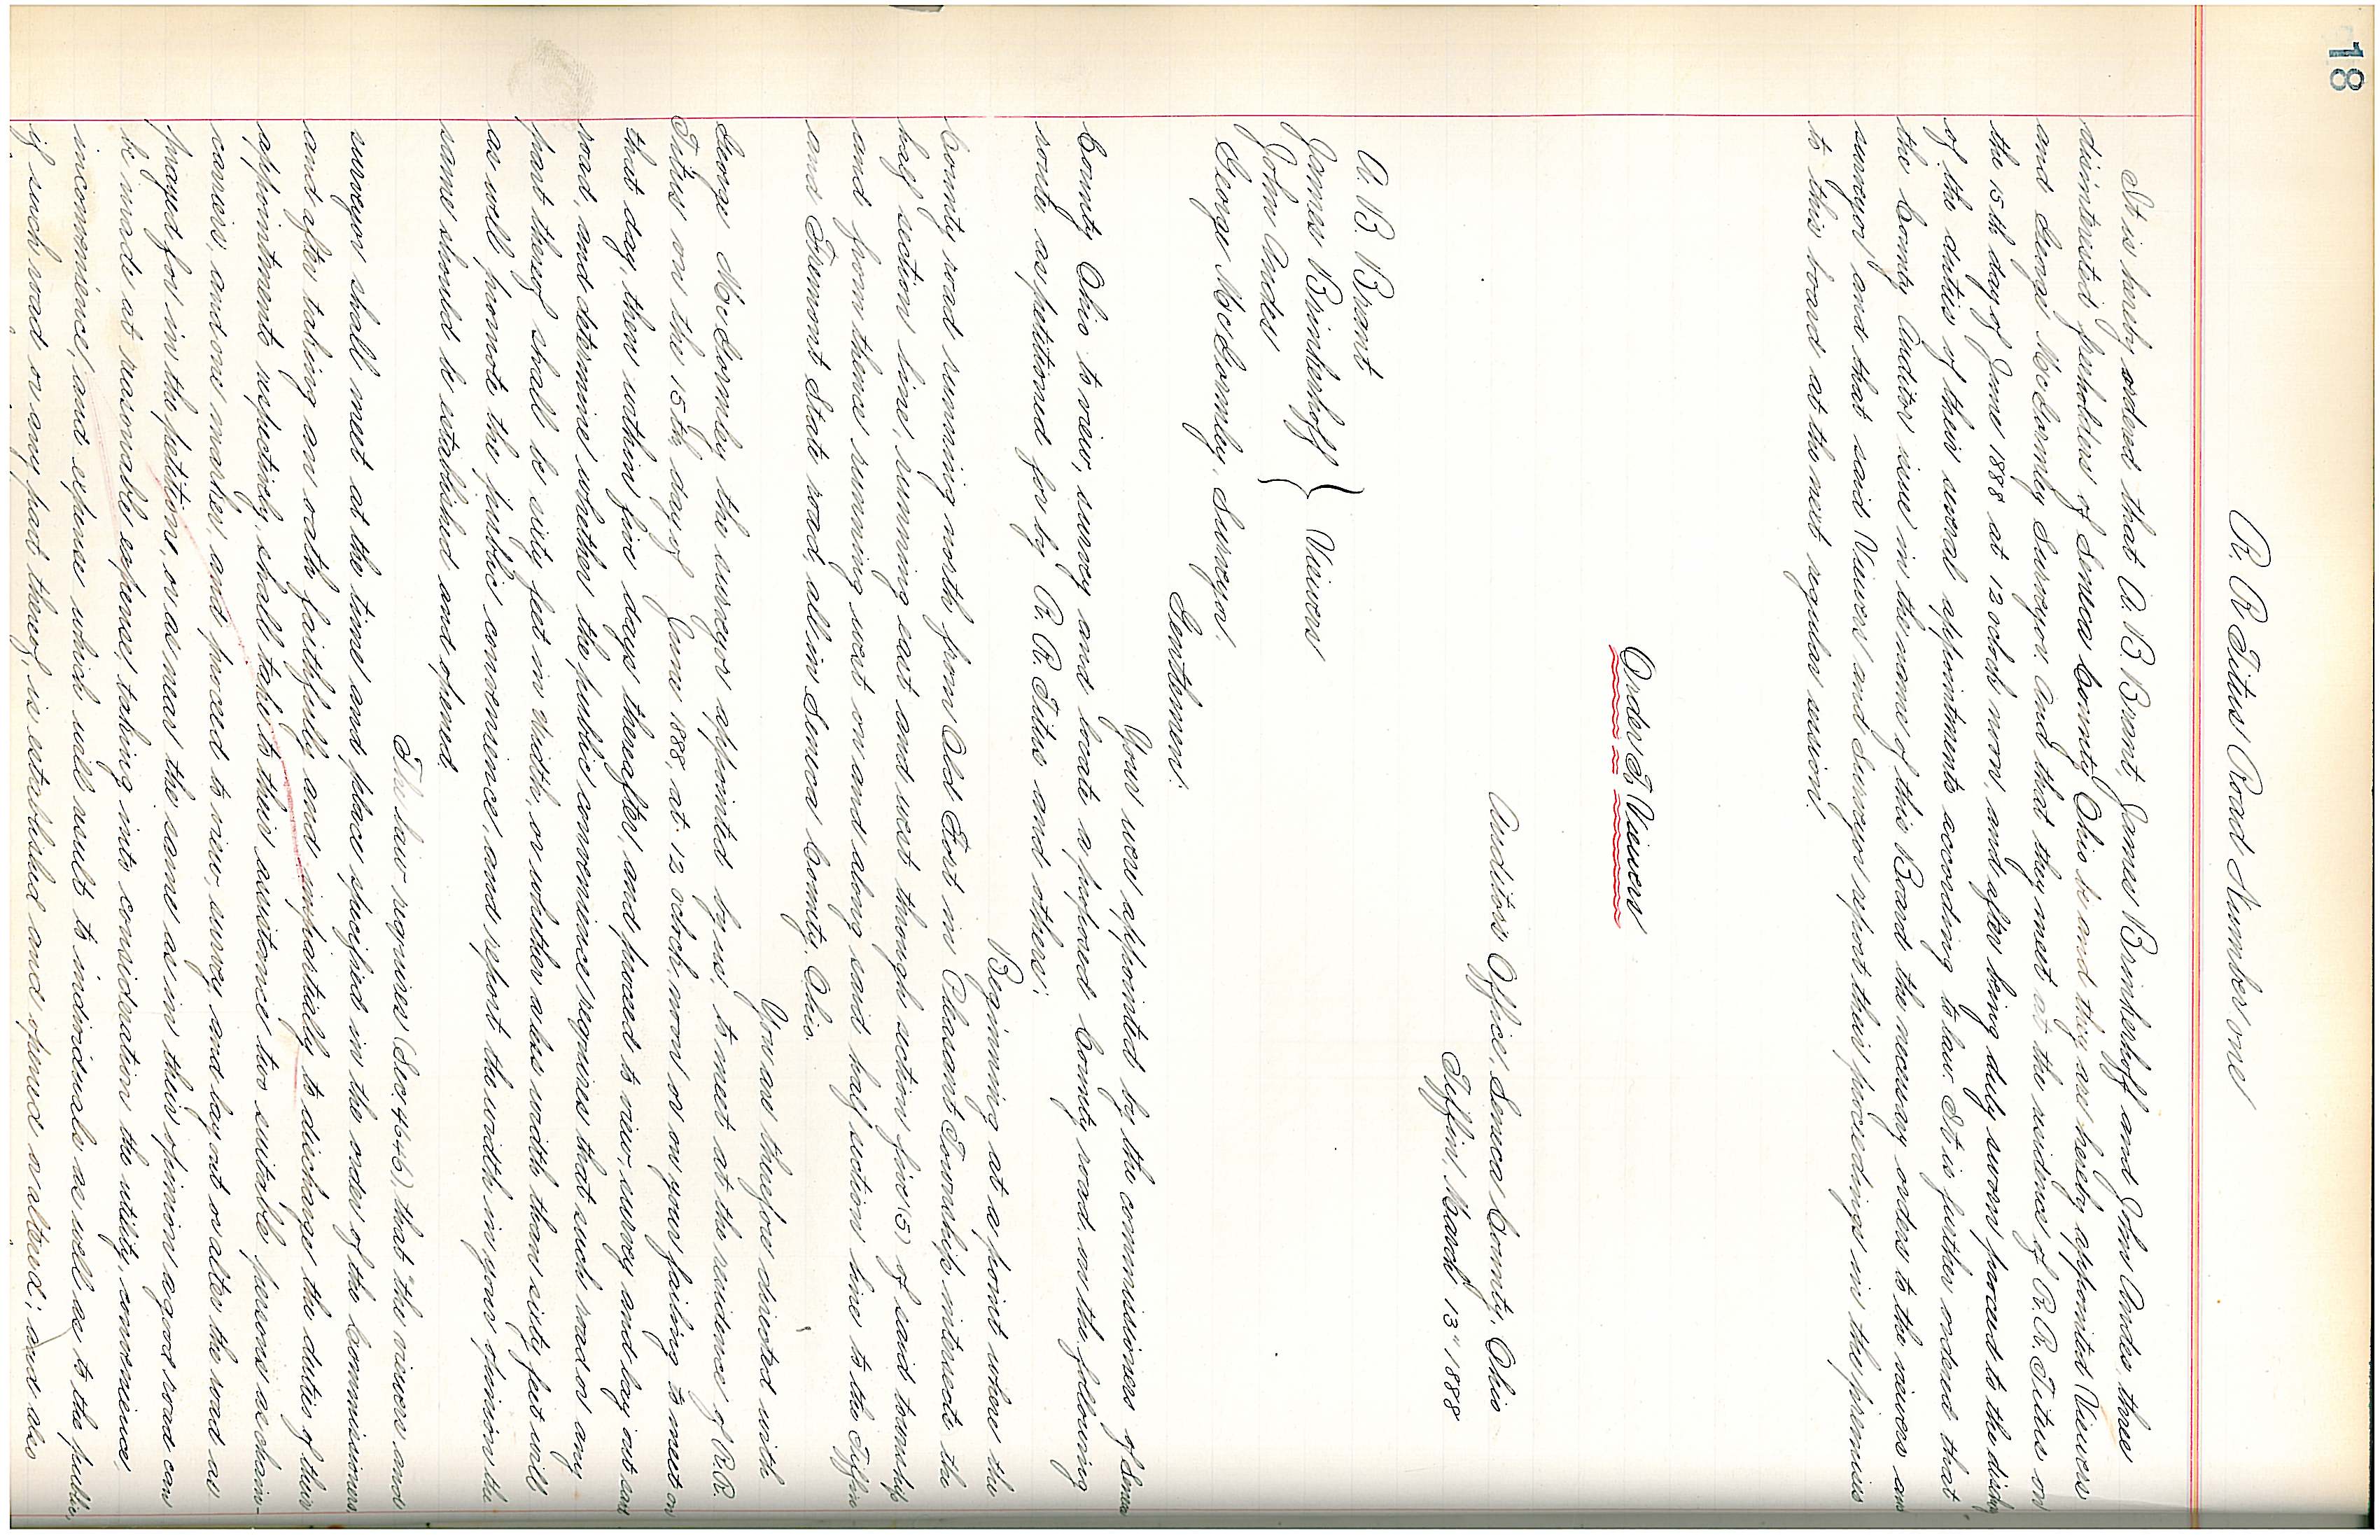 18
R. R. Titus Road Number one
It is hereby ordered that A. B. Brant, James Brinkerhoff and John Andes three
disintrested freeholders of Seneca County Ohio be and they are hereby appointed Viewers
and George McGormley Surveyor. And that they meet at the residence of R. R. Titus on
the 15th day of June 1888 at 12 oclock noon, and after being duly sworn proceed to the
of the duties of their several appointments according to law. It is further ordered that
the County Auditor issue in the name of this Board the necessary orders to the viewers and
surveyor and that said Viewers and Surveyor report their proceedings in the premises
to this board at the next regular session.
Order To Viewers
Auditors Office, Seneca County, Ohio
Tiffin, March 13" 1888
A. B. Brant
James Brinkerhoff } Viewers
John Andes
George McGormley, Surveyor.
Gentlemen:
You were appointed by the commissioners of Seneca
County Ohio to view, survey and locate a proposed County road on the following
route as petitioned for by R. R. Titus and others;
Beginning at a point where the
County road running north from Old Fort in Pleasant Township intersects the
half section line, running east and west through section five (5) of said township
and from thence running west on and along said half section line to the Tiffin
and Fremont State road, all in Seneca County, Ohio.
You are therefore directed with
George McGormley the surveyor appointed by us, to meet at the residence of R.R.
Titus on the 15th day of June 1888, at 12 oclock, noon or on your failing to meet on
that day, then within five days thereafter, and proceed to view, survey and lay out said
road, and determine whether the public convenience requires that such road or any
part thereof shall be sixty feet in width, or whether a less width than sixty feet will
as well promote the public convenience, and report the width in your opinion the
same should be established and opened.
The law requires (Sec. 4646), that "the viewers and
surveyor shall meet at the time and place specified in the order of the Commissioners
and after taking an oath faithfully and impartially to discharge the duties of their
appointments respectively, shall take to their assistance two suitable persons as chain-
carriers, and one marker, and proceed to view, survey, and lay out or alter the road as
prayed for in the petition, or as near the same as in their opinion a good road can
be made at reasonable expense, taking into consideration the utility, convenience,
inconvenience, and expense which will result to individuals as well as to the public,
if such road or any part thereof, is established and opened or altered; and also